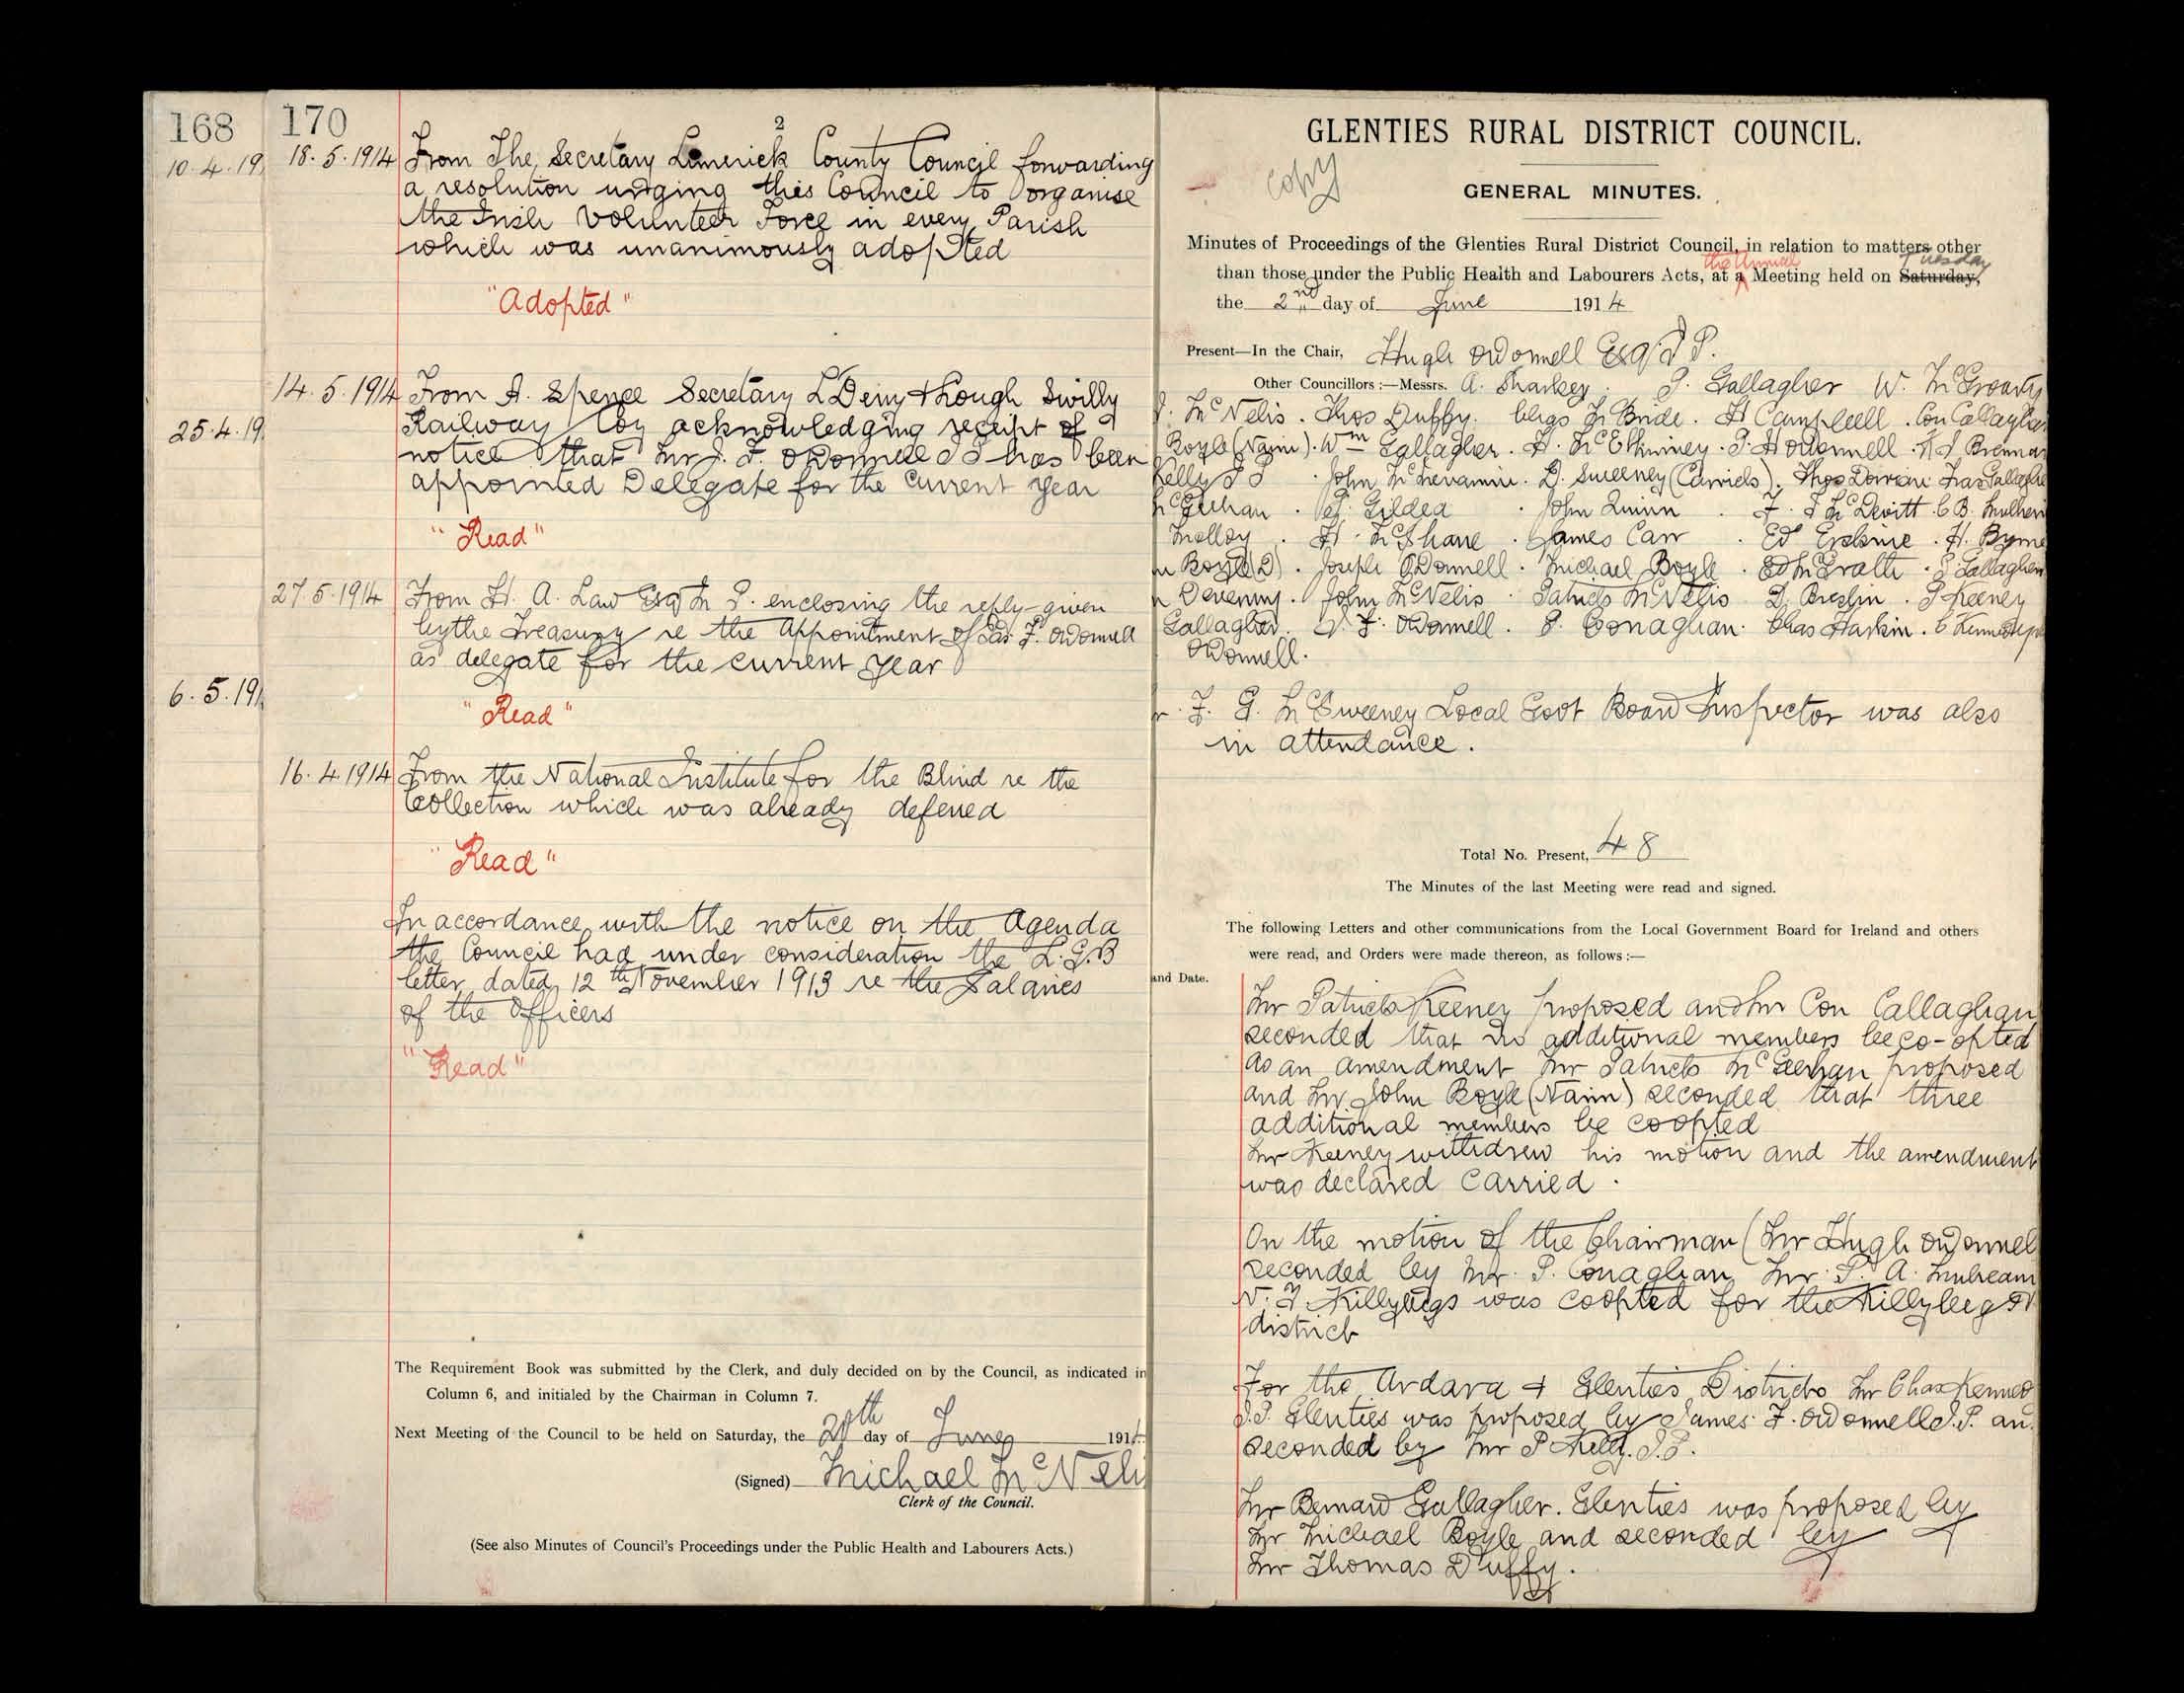 168
10.4.19
25.4.19
6.5.191
170
2
18.5.1914
From The Secretary Limerick County Council forwarding
a resolution urging this Council to organise
the Irish Volunteer Force in every Parish
which was unanimously adopted
"Adopted"
14.5.1914
From A. Spence Secretary L'Derry & Lough Swilly
Railway Coy acknowledging receipt of
notice that Mr J. F. O'Donnell J P has been
appointed Delegate for the Current year
"Read"
27.5.1914
From H. A. Law Esq M P. enclosing the reply given
by the Treasury re the Appointment of Jas F. O'Donnell
as delegate for the current year
"Read"
16.4.1914
From the National Institute for the Blind re the
Collection which was already deferred
"Read"
In accordance with the notice on the Agenda
the Council had under consideration the L.G.B
letter dated 12th November 1913 re the Salaries
of the Officers
"Read"
The Requirement Book was submitted by the Clerk, and duly decided on by the Council, as indicated in
Column 6, and initialed by the Chairman in Column 7.
Next Meeting of the Council to be held on Saturday, the day of June 191
(Signed) Michael McNeli
Clerk of the Council.
(See also Minutes of Council's Proceedings under the Public Health and Labourers Acts.)
GLENTIES RURAL DISTRICT COUNCIL.
Copy
GENERAL MINUTES.
Minutes of Proceedings of the Glenties Rural District Council, in relation to matters other
the Annual Tuesday
than those under the Public Health and Labourers Acts, at a Meeting held on Saturday,
the 2nd day of June 1914
Present—In the Chair, Hugh O'Donnell Esq J P.
Other Councillors:—Messrs. A. Sharkey. P. Gallagher W. McGroarty
J. McNelis. Thos Duffy. Chas McBride. H Campbell. Con Callaghan
Boyle (Narin). Wm Gallagher. H. McElhinney. P. H O'Donnell. Brennan
Kelly J P. John McMenamin. D. Sweeney (Carrick). Thos Fras Gallaghe
McGeehan. P. Gildea. John Quinn. F. McDevitt. C B.
Molloy. H. McShane. James Carr. Ed Erskine. H. Byrne
Boyle (D). Joseph O'Donnell. Michael Boyle. Ed McGrath. Gallagher
Devenny. John McNelis. Patrick McNelis D. Breslin. P Keeney
Gallagher. J. F. O'Donnell. P. Conaghan. Chas Harkin. C Kennedy
O'Donnell.
r. F. G. McSweeney Local Govt Board Inspector was also
in attendance.
Total No. Present, 48
The Minutes of the last Meeting were read and signed.
The following Letters and other communications from the Local Government Board for Ireland and others
were read, and Orders were made thereon, as follows:—
and Date.
Mr Patrick Keeney proposed and Mr Con Callaghan
seconded that no additional members be co-opted
As an amendment Mr Patrick McGeehan proposed
and Mr John Boyle (Narin) seconded that three
additional members be coopted
Mr Keeney withdrew his motion and the amendment
was declared Carried.
On the motion of the Chairman (Mr Hugh O'Donnel
seconded by Mr. P. Conaghan Mr. P. A. Mulreany
V. S. Killybegs was coopted for the Killybegs
district
For the Ardara & Glenties Districts Mr Chas Kenned
J.P. Glenties was proposed by James F. O'Donnell J.P. an
seconded by Mr P Kelly. J.P.
Mr Bernard Gallagher. Glenties was proposed by
Mr Michael Boyle and seconded by
Mr Thomas Duffy.